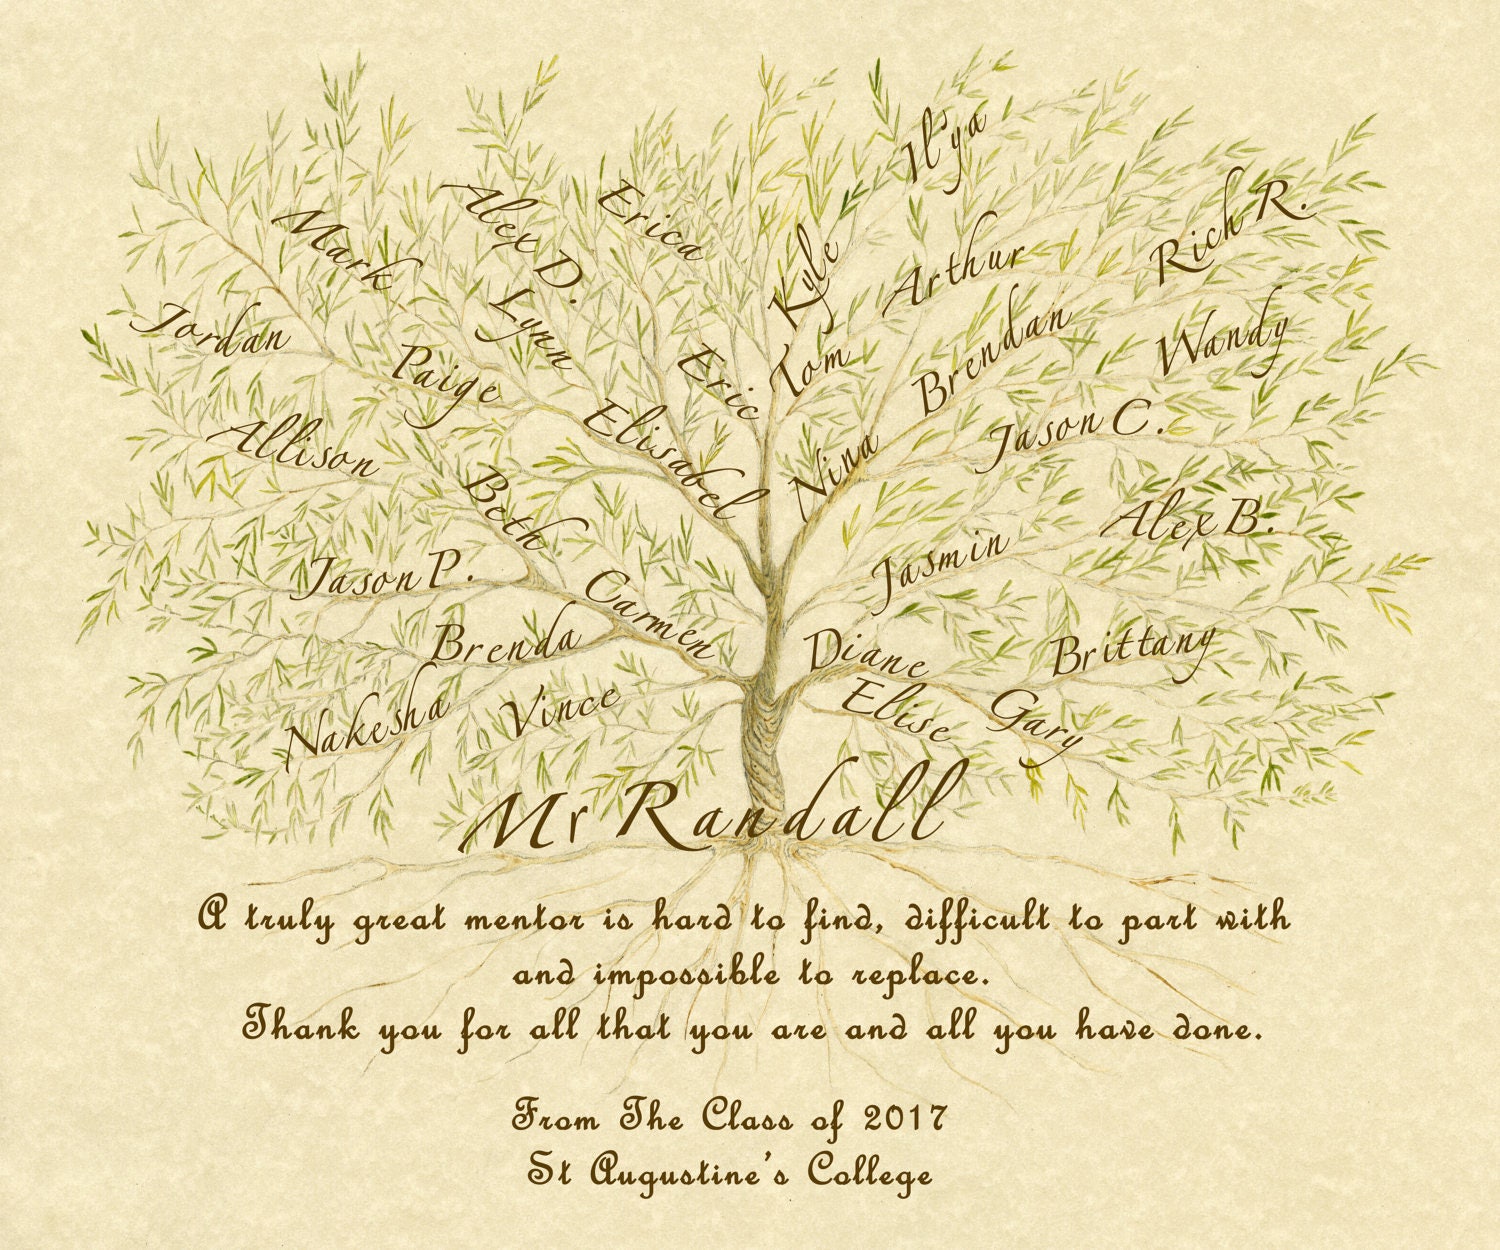 Il'ya
Mark
Alex D.
Erica
Kyle
Arthur
Rich R.
Jordan
Lynn
Paige
Eric
Tom
Brendan
Wandy
Allison
Elisabel
Nina
Jason C.
Beth
Alex B.
Jason P.
Carmen
Jasmin
Brenda
Diane
Brittany
Nakesha
Vince
Elise
Gary
Mr Randall
A truly great mentor is hard to find, difficult to part with
and impossible to replace.
Thank you for all that you are and all you have done.
From The Class of 2017
St Augustine's College